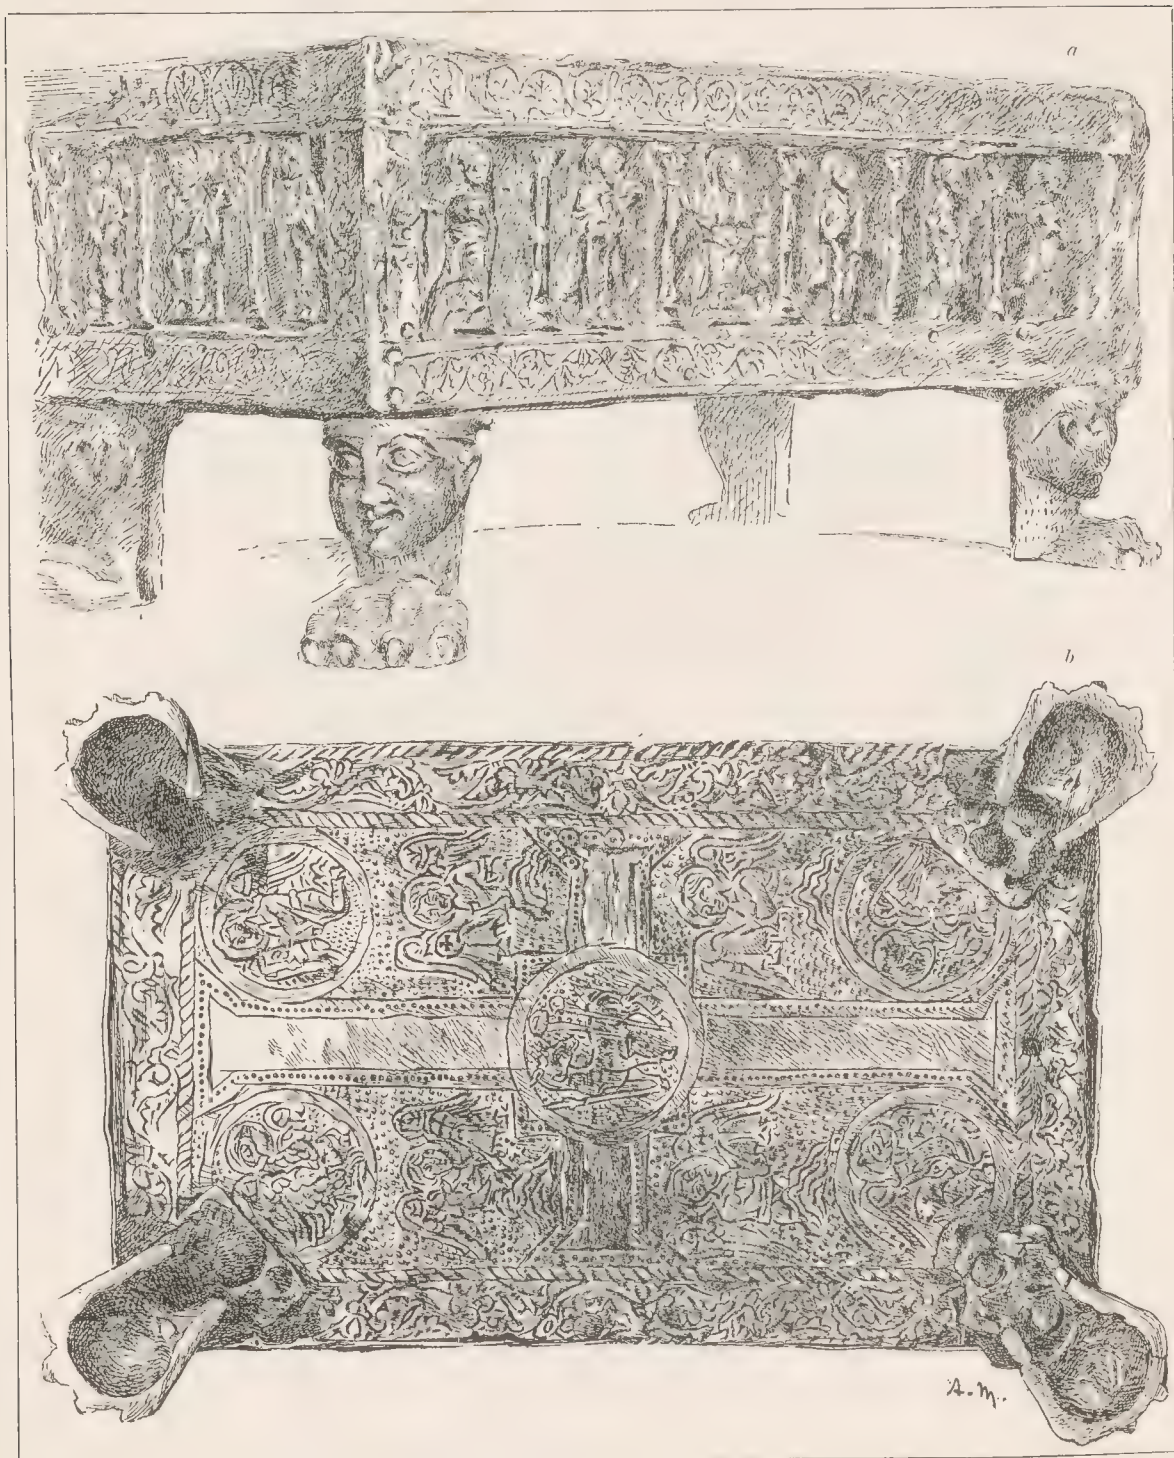 a
b
A. M.